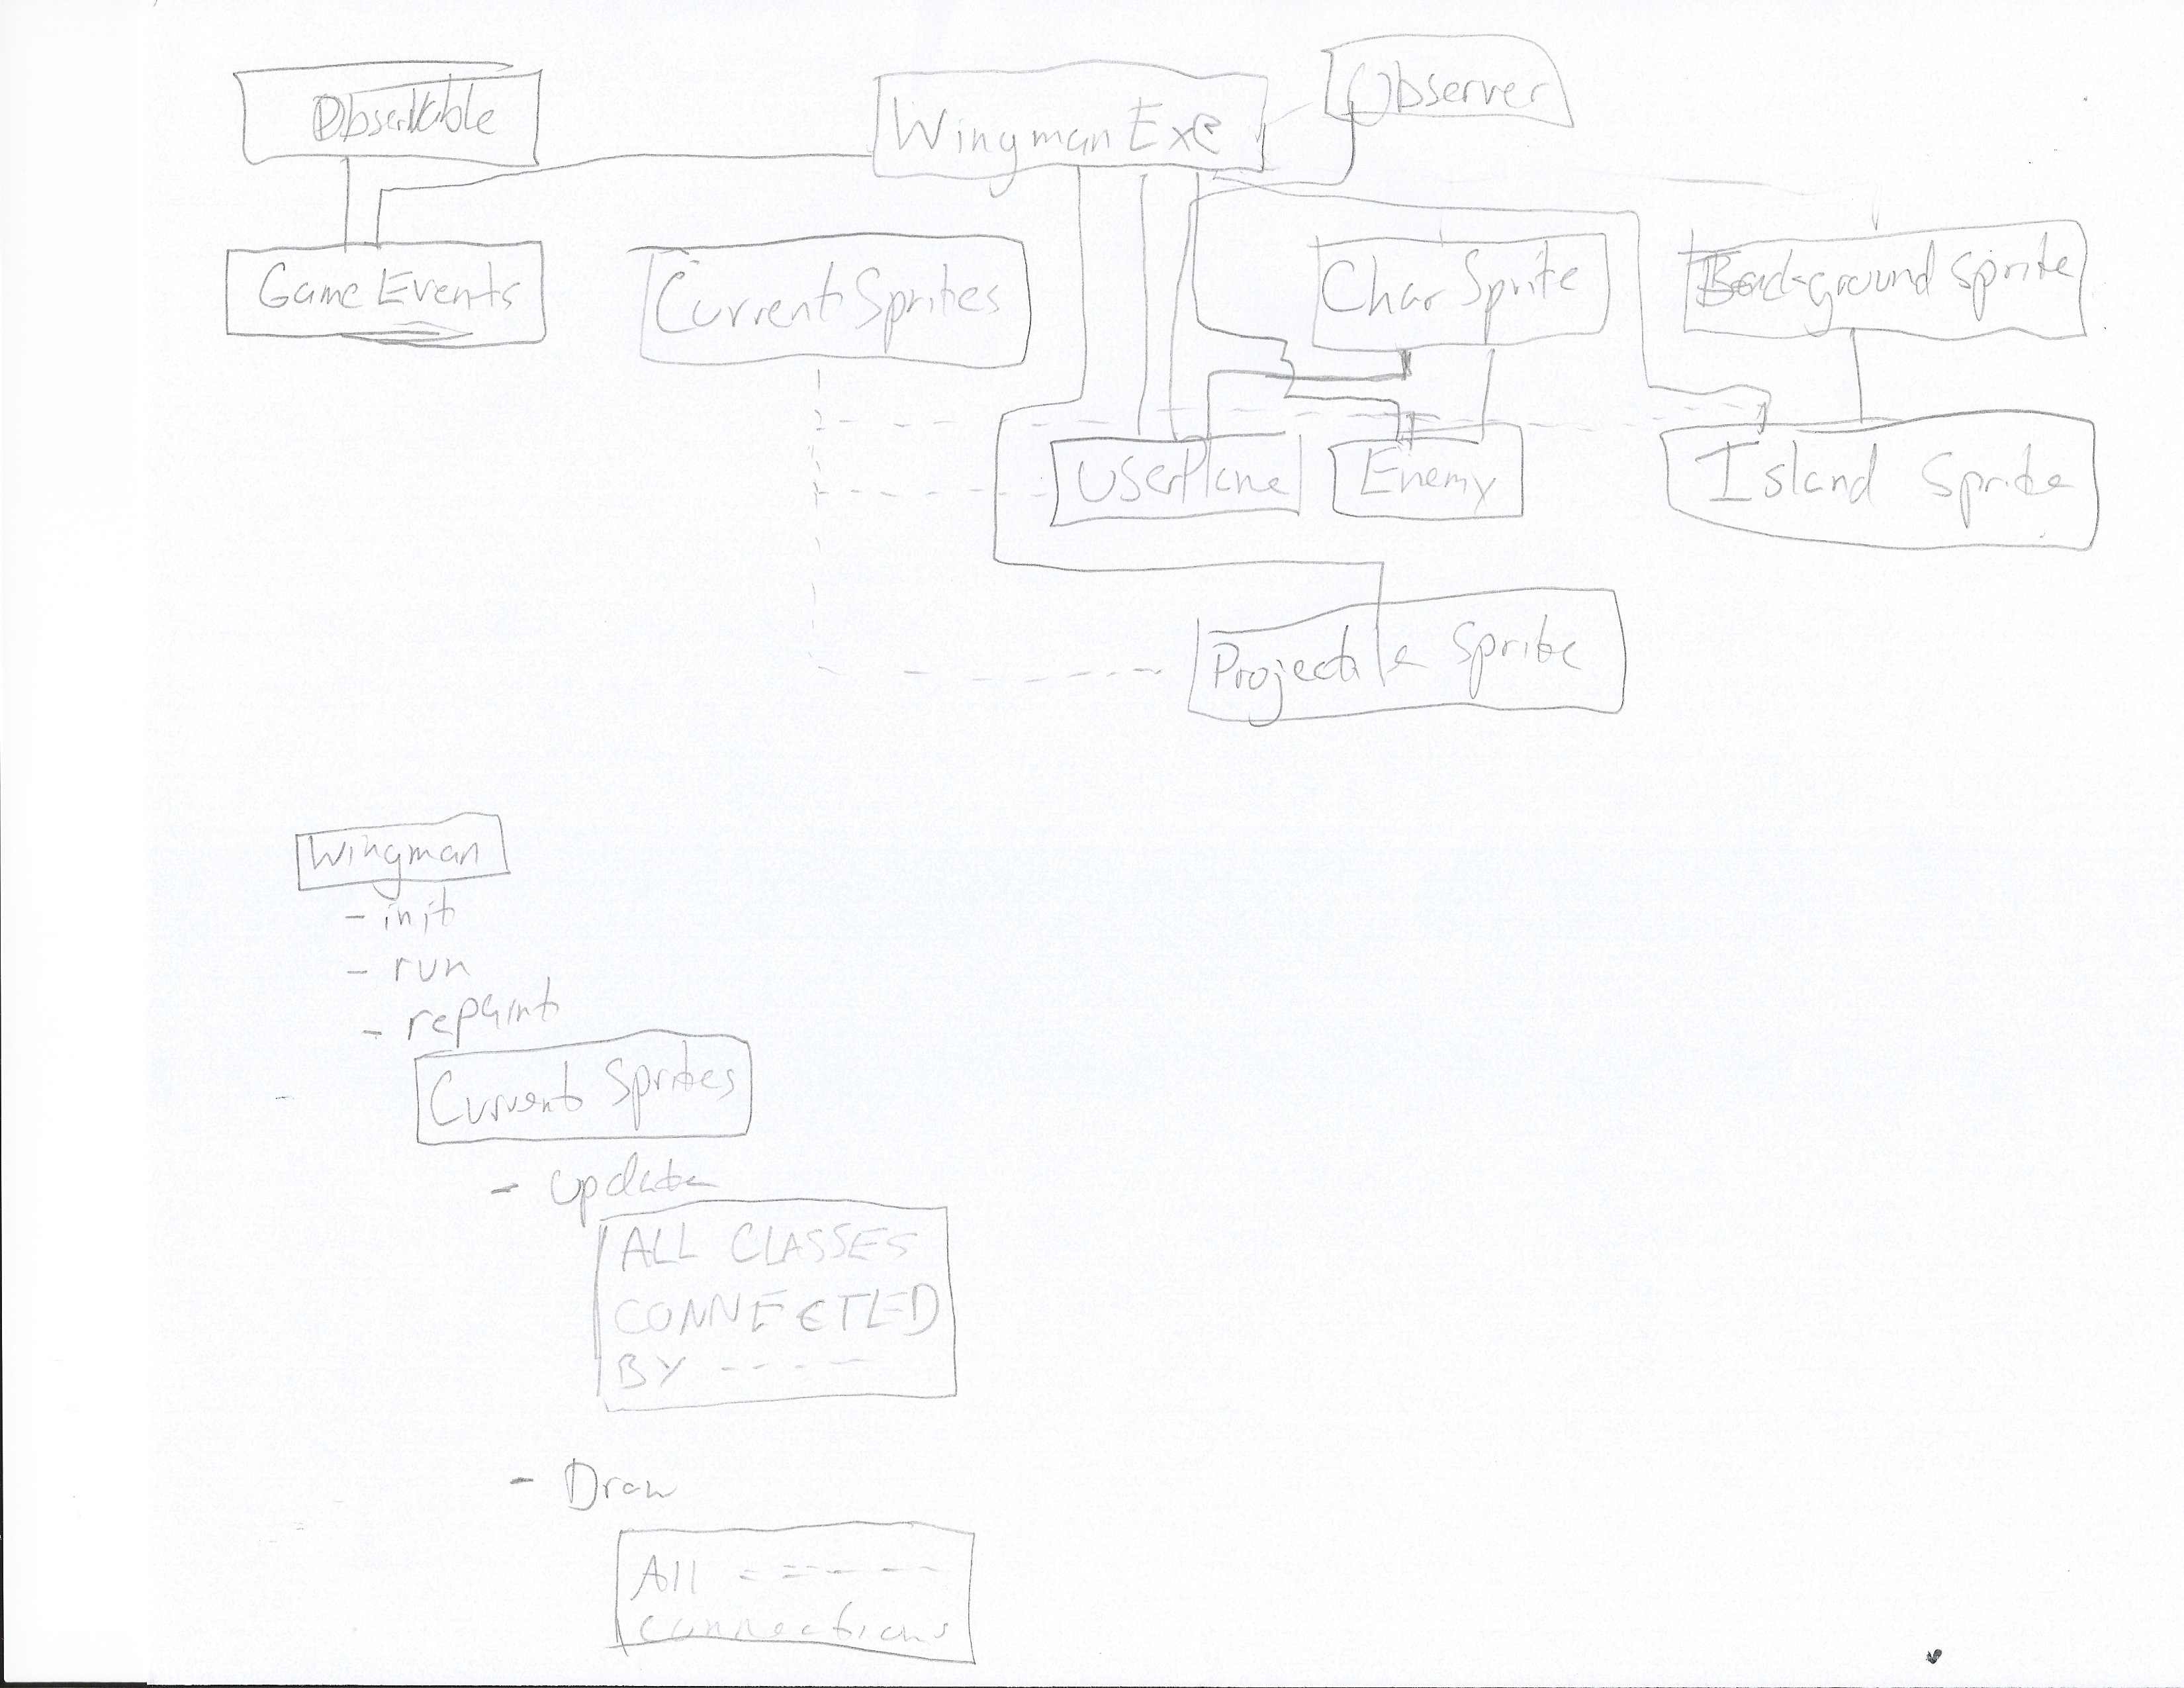 Observable
WingmanExe
Observer
Game Events
Current Sprites
Char Sprite
Background Sprite
UserPlane
Enemy
Island Sprite
Projectile Sprite
Wingman
- init
- run
- repaint
Current Sprites
- update
ALL CLASSES
CONNECTED
BY -----
- Draw
All ------
connections